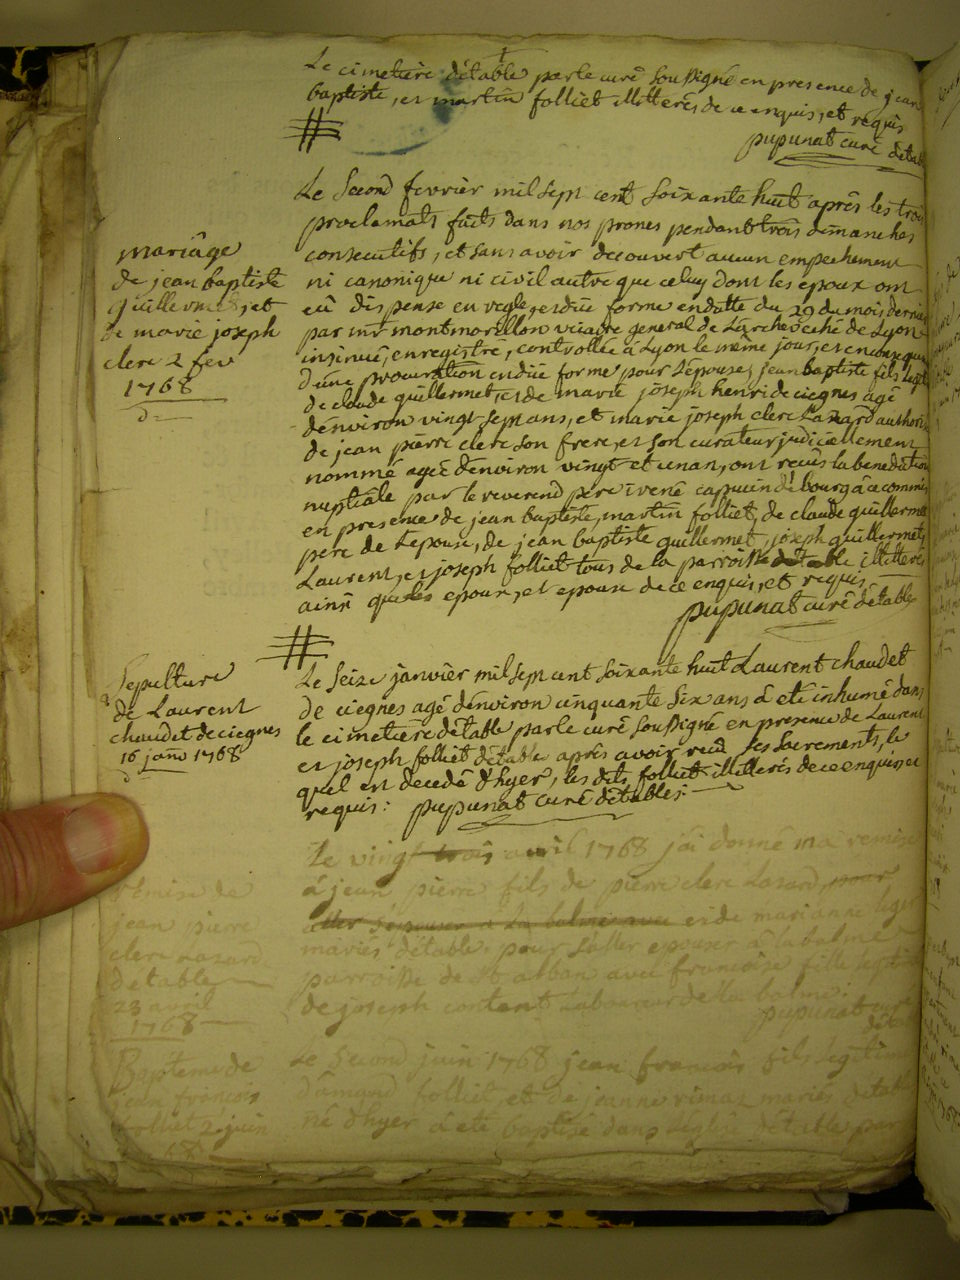 Le cimetière détable par le curé soussigné en presence de jean
baptiste, et martin folliet illitterés de ce enquis, et requis
pupunat curé détable
mariâge
de jean baptiste
guillermet, et
de marie joseph
clerc 2 fev
1768
Le second fevrier mil sept cent soixante huit après les trois
proclamats faits dans nos prones pendant trois dimanches
consecutifs, et sans avoir decouvert aucun empechement
ni canonique ni civil autre que celuy dont les epoux ont
eû dispense en regle, et düe forme en datte du 29 du mois dernier
par mr montmorillon vicaire general de L'archevêché de Lyon
insinuée, enregistré, controllée à Lyon le même jour, et encore que
d'une procuration en düe forme pour L'epouse, jean baptiste fils legit
de claude guillermet, et de marie joseph henri de ciegnes agé
denviron vingt sept ans, et marie joseph clerc Lazard authoris
de jean pierre clerc son frere, et son curateur judiciellement
nommé ageé denviron vingt et un an, ont reçus la benediction
nuptiale par le reverend père irené capucin de bourg à ce commis
en presence de jean baptiste, martin folliet, de claude guillermet
père de Lepoux, de jean baptiste guillermet, joseph guillermet,
Laurent, et joseph folliet tous de la parroisse détable illitterés
ainsi que les epoux, et epouse de ce enquis, et requis
pupunat curé détable
Sepulture
de Laurent
chaudet de ciegnes
16 janv 1768
Le seize janvier mil sept cent soixante huit Laurent chaudet
de ciegnes agé denviron cinquante six ans à eté inhumé dans
le cimetière détable par le curé soussigné en presence de Laurent
et joseph folliet détable après avoir reçu ses sacrements, le
quel est decedé d'hyer, les dits folliet illitterés de ce enquis, et
requis: pupunat curé détable:
remise de
jean pierre
clerc Lazard
détable
23 avril
1768
Le vingt trois avril 1768 j'ai donné ma remise
à jean pierre fils de pierre clerc Lazard pour
aller épouser a La balme avec et de marianne leger
mariés détable pour saller epouser à la balme
parroisse de st alban avec françoise fille legit
de joseph contant Laboureur de la balme:
pupunat curé
détable
Baptême de
jean françois
folliet 2 juin
68
Le second juin 1768 jean françois fils legitime
d'amand folliet et de jeanne rimaz mariés détable
né d'hyer à eté baptisé dans l'église détable par